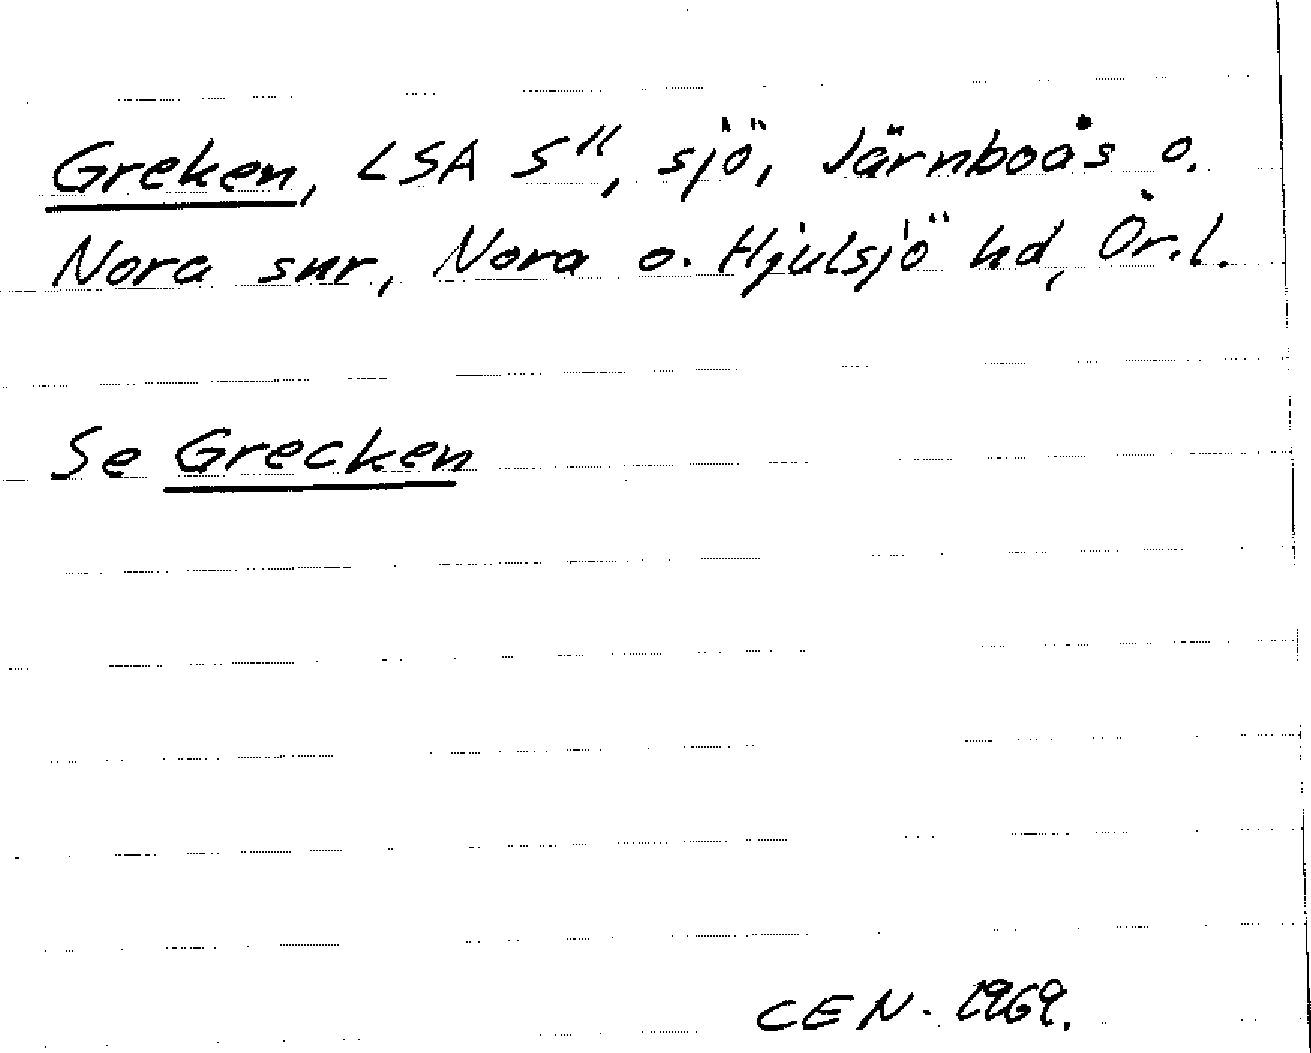 Greken, LSA S", sjö, Järnboås o.
Nora snr, Nora o. Hjulsjö hd, Ör.l.
Se Grecken
CEN. 1969.